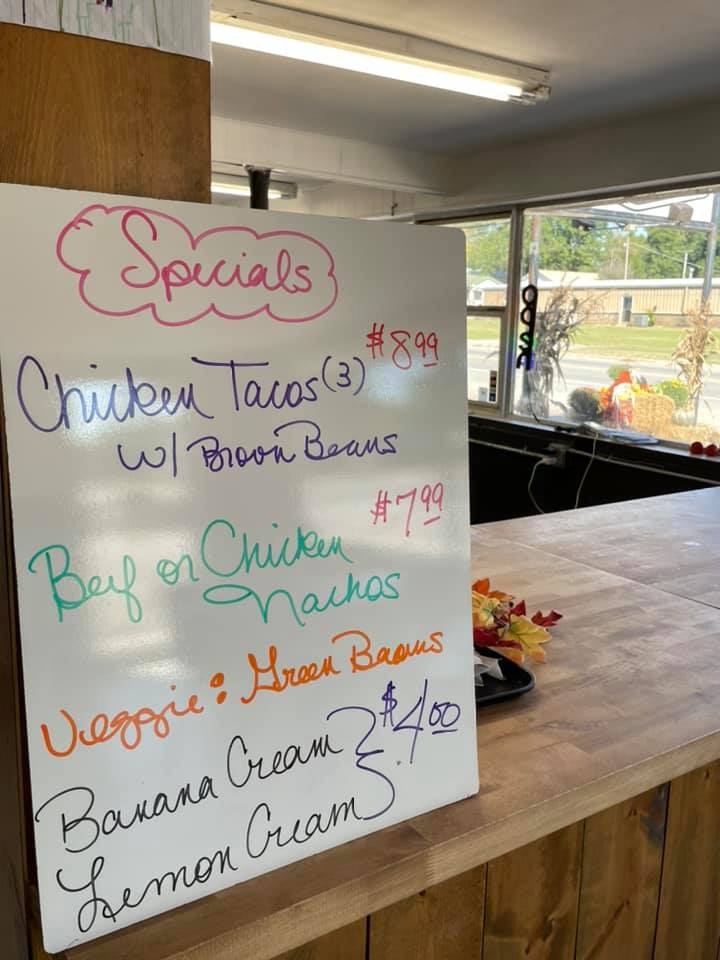 Specials
$8.99
Chicken Tacos (3)
w/ Brown Beans
$7.99
Beef or Chicken
Nachos
Veggie: Green Beans
Banana Cream $4.00
Lemon Cream
open